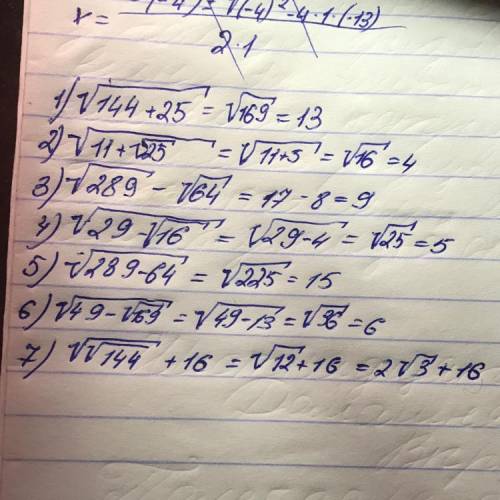 x = -(-4) ± √(-4)² - 4·1·(-13)
2·1
1) √144+25 = √169 = 13
2) √11+√25 = √11+5 = √16 = 4
3) √289 - √64 = 17 - 8 = 9
4) √29-√16 = √29-4 = √25 = 5
5) √289-64 = √225 = 15
6) √49-√69 = √49-13 = √36 = 6
7) √√144 + 16 = √12 + 16 = 2√3 + 16